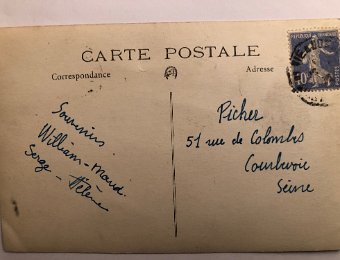 CARTE POSTALE
Correspondance
Adresse
Souvenirs
William - Maud
Serge - Hélène
Picher
51 rue de Colombes
Courbevoie
Seine